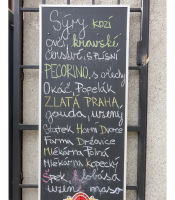 Sýry kozí
ovčí, kravské
čerstvé, s plísní
PECORINO, s ořechy
Okáč, Popelák
ZLATÁ PRAHA,
gouda, uzený
Statek Horní Dvorce
Farma Držovice
Mlékárna Polná
Mlékárna kopecký
Špek klobása
uzené maso